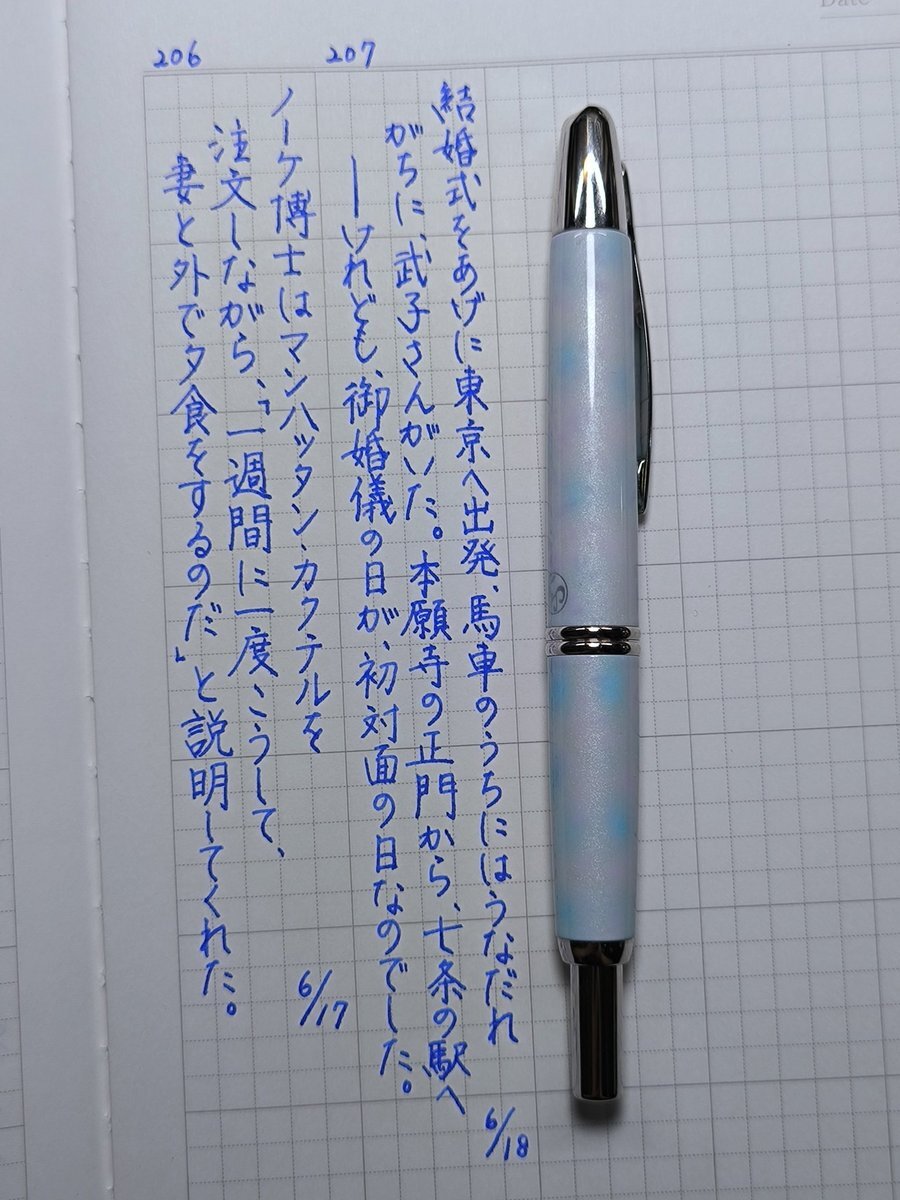 Date
207
結婚式をあげに東京へ出発、馬車のうちにはうなだれ
がちに、武子さんがいた。本願寺の正門から、七条の駅へ
―けれども、御婚儀の日が、初対面の日なのでした。
6/18
206
ノーケ博士はマンハッタン・カクテルを
注文しながら、「一週間に一度こうして、
妻と外で夕食をするのだ」と説明してくれた。
6/17